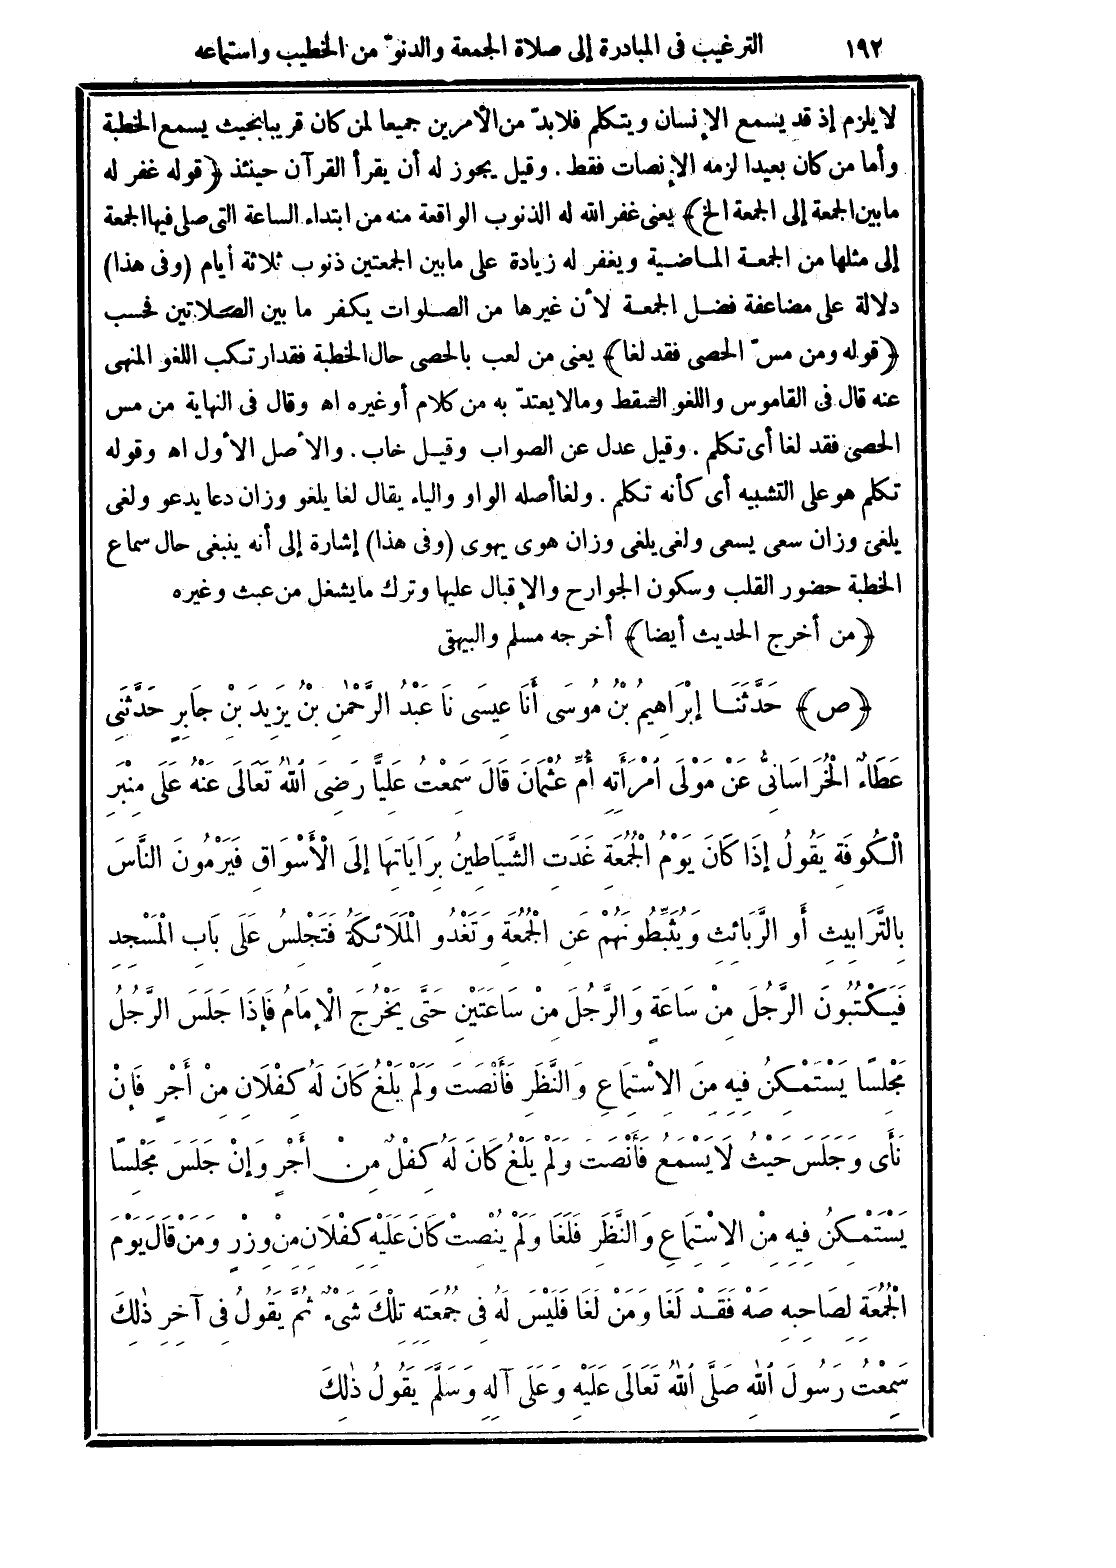 ١٩٢ الترغيب فى المبادرة إلى صلاة الجمعة والدنوّ من الخطيب واستماعه
لايلزم إذ قد يسمع الإنسان ويتكلم فلابدّ من الأمرين جميعا لمن كان قريبا بحيث يسمع الخطبة
وأما من كان بعيدا لزمه الإنصات فقط . وقيل يجوز له أن يقرأ القرآن حينئذ ﴿قوله غفر له
مابين الجمعة إلى الجمعة الخ﴾ يعنى غفر الله له الذنوب الواقعة منه من ابتداء الساعة التى صلى فيها الجمعة
إلى مثلها من الجمعة الماضية ويغفر له زيادة على مابين الجمعتين ذنوب ثلاثة أيام (وفى هذا)
دلالة على مضاعفة فضل الجمعة لأن غيرها من الصلوات يكفر ما بين الصلاتين فحسب
﴿قوله ومن مسّ الحصى فقد لغا﴾ يعنى من لعب بالحصى حال الخطبة فقد ارتكب اللغو المنهى
عنه قال فى القاموس واللغو السقط ومالايعتدّ به من كلام أوغيره اه وقال فى النهاية من مس
الحصى فقد لغا أى تكلم . وقيل عدل عن الصواب وقيل خاب . والأصل الأول اه وقوله
تكلم هو على التشبيه أى كأنه تكلم . ولغا أصله الواو والياء يقال لغا يلغو وزان دعا يدعو ولغى
يلغى وزان سعى يسعى ولغى يلغى وزان هوى يهوى (وفى هذا) إشارة إلى أنه ينبغى حال سماع
الخطبة حضور القلب وسكون الجوارح والإقبال عليها وترك مايشغل من عبث وغيره
﴿من أخرج الحديث أيضا﴾ أخرجه مسلم والبيهقى
﴿ص﴾ حَدَّثَنَا إِبْرَاهِيمُ بْنُ مُوسَى أَنَا عِيسَى نَا عَبْدُ الرَّحْمٰنِ بْنُ يَزِيدَ بْنِ جَابِرٍ حَدَّثَنِى
عَطَاءٌ الْخُرَاسَانِىُّ عَنْ مَوْلَى امْرَأَتِهِ أُمِّ عُثْمَانَ قَالَ سَمِعْتُ عَلِيًّا رَضِىَ اللهُ تَعَالَى عَنْهُ عَلَى مِنْبَرِ
الْكُوفَةِ يَقُولُ إِذَا كَانَ يَوْمُ الْجُمُعَةِ غَدَتِ الشَّيَاطِينُ بِرَايَاتِهَا إِلَى الْأَسْوَاقِ فَيَرْمُونَ النَّاسَ
بِالتَّرَابِيثِ أَوِ الرَّبَائِثِ وَيُثَبِّطُونَهُمْ عَنِ الْجُمُعَةِ وَتَغْدُو الْمَلَائِكَةُ فَتَجْلِسُ عَلَى بَابِ الْمَسْجِدِ
فَيَكْتُبُونَ الرَّجُلَ مِنْ سَاعَةٍ وَالرَّجُلَ مِنْ سَاعَتَيْنِ حَتَّى يَخْرُجَ الْإِمَامُ فَإِذَا جَلَسَ الرَّجُلُ
مَجْلِسًا يَسْتَمْكِنُ فِيهِ مِنَ الِاسْتِمَاعِ وَالنَّظَرِ فَأَنْصَتَ وَلَمْ يَلْغُ كَانَ لَهُ كِفْلَانِ مِنْ أَجْرٍ فَإِنْ
نَأَى وَجَلَسَ حَيْثُ لَا يَسْمَعُ فَأَنْصَتَ وَلَمْ يَلْغُ كَانَ لَهُ كِفْلٌ مِنْ أَجْرٍ وَإِنْ جَلَسَ مَجْلِسًا
يَسْتَمْكِنُ فِيهِ مِنْ الِاسْتِمَاعِ وَالنَّظَرِ فَلَغَا وَلَمْ يُنْصِتْ كَانَ عَلَيْهِ كِفْلَانِ مِنْ وِزْرٍ وَمَنْ قَالَ يَوْمَ
الْجُمُعَةِ لِصَاحِبِهِ صَهْ فَقَدْ لَغَا وَمَنْ لَغَا فَلَيْسَ لَهُ فِى جُمُعَتِهِ تِلْكَ شَىْءٌ ثُمَّ يَقُولُ فِى آخِرِ ذٰلِكَ
سَمِعْتُ رَسُولَ اللهِ صَلَّى اللهُ تَعَالَى عَلَيْهِ وَعَلَى آلِهِ وَسَلَّمَ يَقُولُ ذٰلِكَ